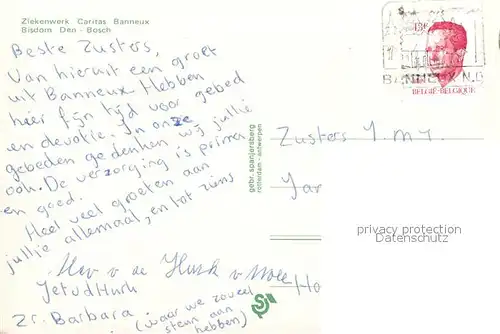 Ziekenwerk Caritas Banneux
Bisdom Den - Bosch
Beste Zusters,
Van hieruit een groet
uit Banneux. Hebben
hier fijn tijd voor gebed
en devotie. In onze
gebeden gedenken wij jullie
ook. De verzorging is prima
en goed.
Heel veel groeten aan
jullie allemaal, en tot ziens
v d Hurk v
Jet vd Hurk
Zr. Barbara (waar we zoveel
steun aan
hebben)
gebr. spanjersberg
rotterdam - antwerpen
13F
BANNEUX N.D
BELGIË-BELGIQUE
Zusters J.M.J.
Jan
Ho
privacy protection
Datenschutz